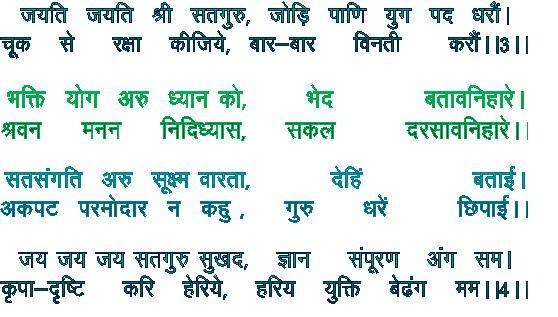 जयति जयति श्री सतगुरु, जोड़ि पाणि युग पद धरौं।
चूक से रक्षा कीजिये, बार–बार विनती करौं।।3।।
भक्ति योग अरु ध्यान को, भेद बतावनिहारे।
श्रवन मनन निदिध्यास, सकल दरसावनिहारे।।
सतसंगति अरु सूक्ष्म वारता, देहिं बताई।
अकपट परमोदार न कहु , गुरु धरें छिपाई।।
जय जय जय सतगुरु सुखद, ज्ञान संपूरण अंग सम।
कृपा–दृष्टि करि हेरिये, हरिय युक्ति बेढंग मम।।4।।